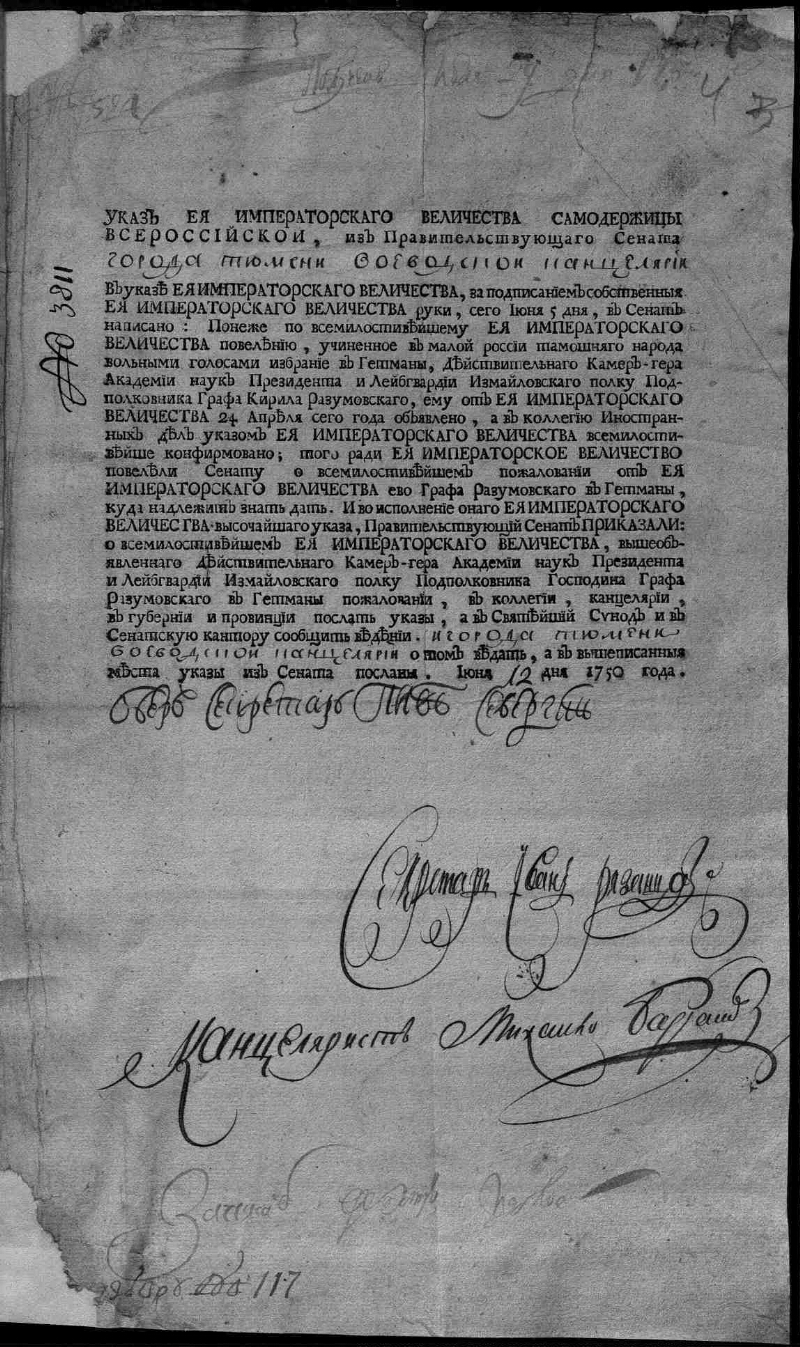 4
УКАЗЪ ЕЯ ИМПЕРАТОРСКАГО ВЕЛИЧЕСТВА САМОДЕРЖИЦЫ
ВСЕРОССІЙСКОЙ, изЪ Правительствующаго Сената
города тюмени воеводской канцелярїи
ВЪ указѣ ЕЯ ИМПЕРАТОРСКАГО ВЕЛИЧЕСТВА, за подписанїемЪ собственныя
ЕЯ ИМПЕРАТОРСКАГО ВЕЛИЧЕСТВА руки, сего Іюня 5 дня, вЪ СенатЪ
написано: Понеже по всемилостивѣйшему ЕЯ ИМПЕРАТОРСКАГО
ВЕЛИЧЕСТВА повелѣнїю, учиненное вЪ малой россїи тамошняго народа
вольными голосами избранїе вЪ Гетманы, Дѣйствительнаго КамерЪ-гера
Академїи наукЪ Президента и Лейбгвардїи Измайловскаго полку Под-
полковника Графа Кирила Разумовскаго, ему отЪ ЕЯ ИМПЕРАТОРСКАГО
ВЕЛИЧЕСТВА 24 Апрѣля сего года обЪявлено, а вЪ коллегїю Иностран-
ныхЪ дѣлЪ указомЪ ЕЯ ИМПЕРАТОРСКАГО ВЕЛИЧЕСТВА всемилости-
вѣйше конфирмовано; того ради ЕЯ ИМПЕРАТОРСКОЕ ВЕЛИЧЕСТВО
повелѣли Сенату о всемилостивѣйшемЪ пожалованїи отЪ ЕЯ
ИМПЕРАТОРСКАГО ВЕЛИЧЕСТВА ево Графа Разумовскаго вЪ Гетманы,
куда надлежитЪ знать дать. И во исполненїе онаго ЕЯ ИМПЕРАТОРСКАГО
ВЕЛИЧЕСТВА высочайшаго указа, Правительствующїй СенатЪ ПРИКАЗАЛИ:
о всемилостивѣйшемЪ ЕЯ ИМПЕРАТОРСКАГО ВЕЛИЧЕСТВА, вышеобЪ-
явленнаго Дѣйствительнаго КамерЪ-гера Академїи наукЪ Президента
и Лейбгвардїи Измайловскаго полку Подполковника Господина Графа
Разумовскаго вЪ Гетманы пожалованїи, вЪ коллегїи, канцелярїи,
вЪ губернїи и провинцїи послать указы, а вЪ Святѣйшїй СѵнодЪ и вЪ
Сенатскую кантору сообщить вѣденїи. и города тюмени
воеводской канцелярїи о томЪ вѣдать, а вЪ вышеписанныя
мѣста указы изЪ Сената посланы. Іюня 12 дня 1750 года.
Оберъ Секретарь
Секретарь Иванъ
Канцеляристъ Михаило
117